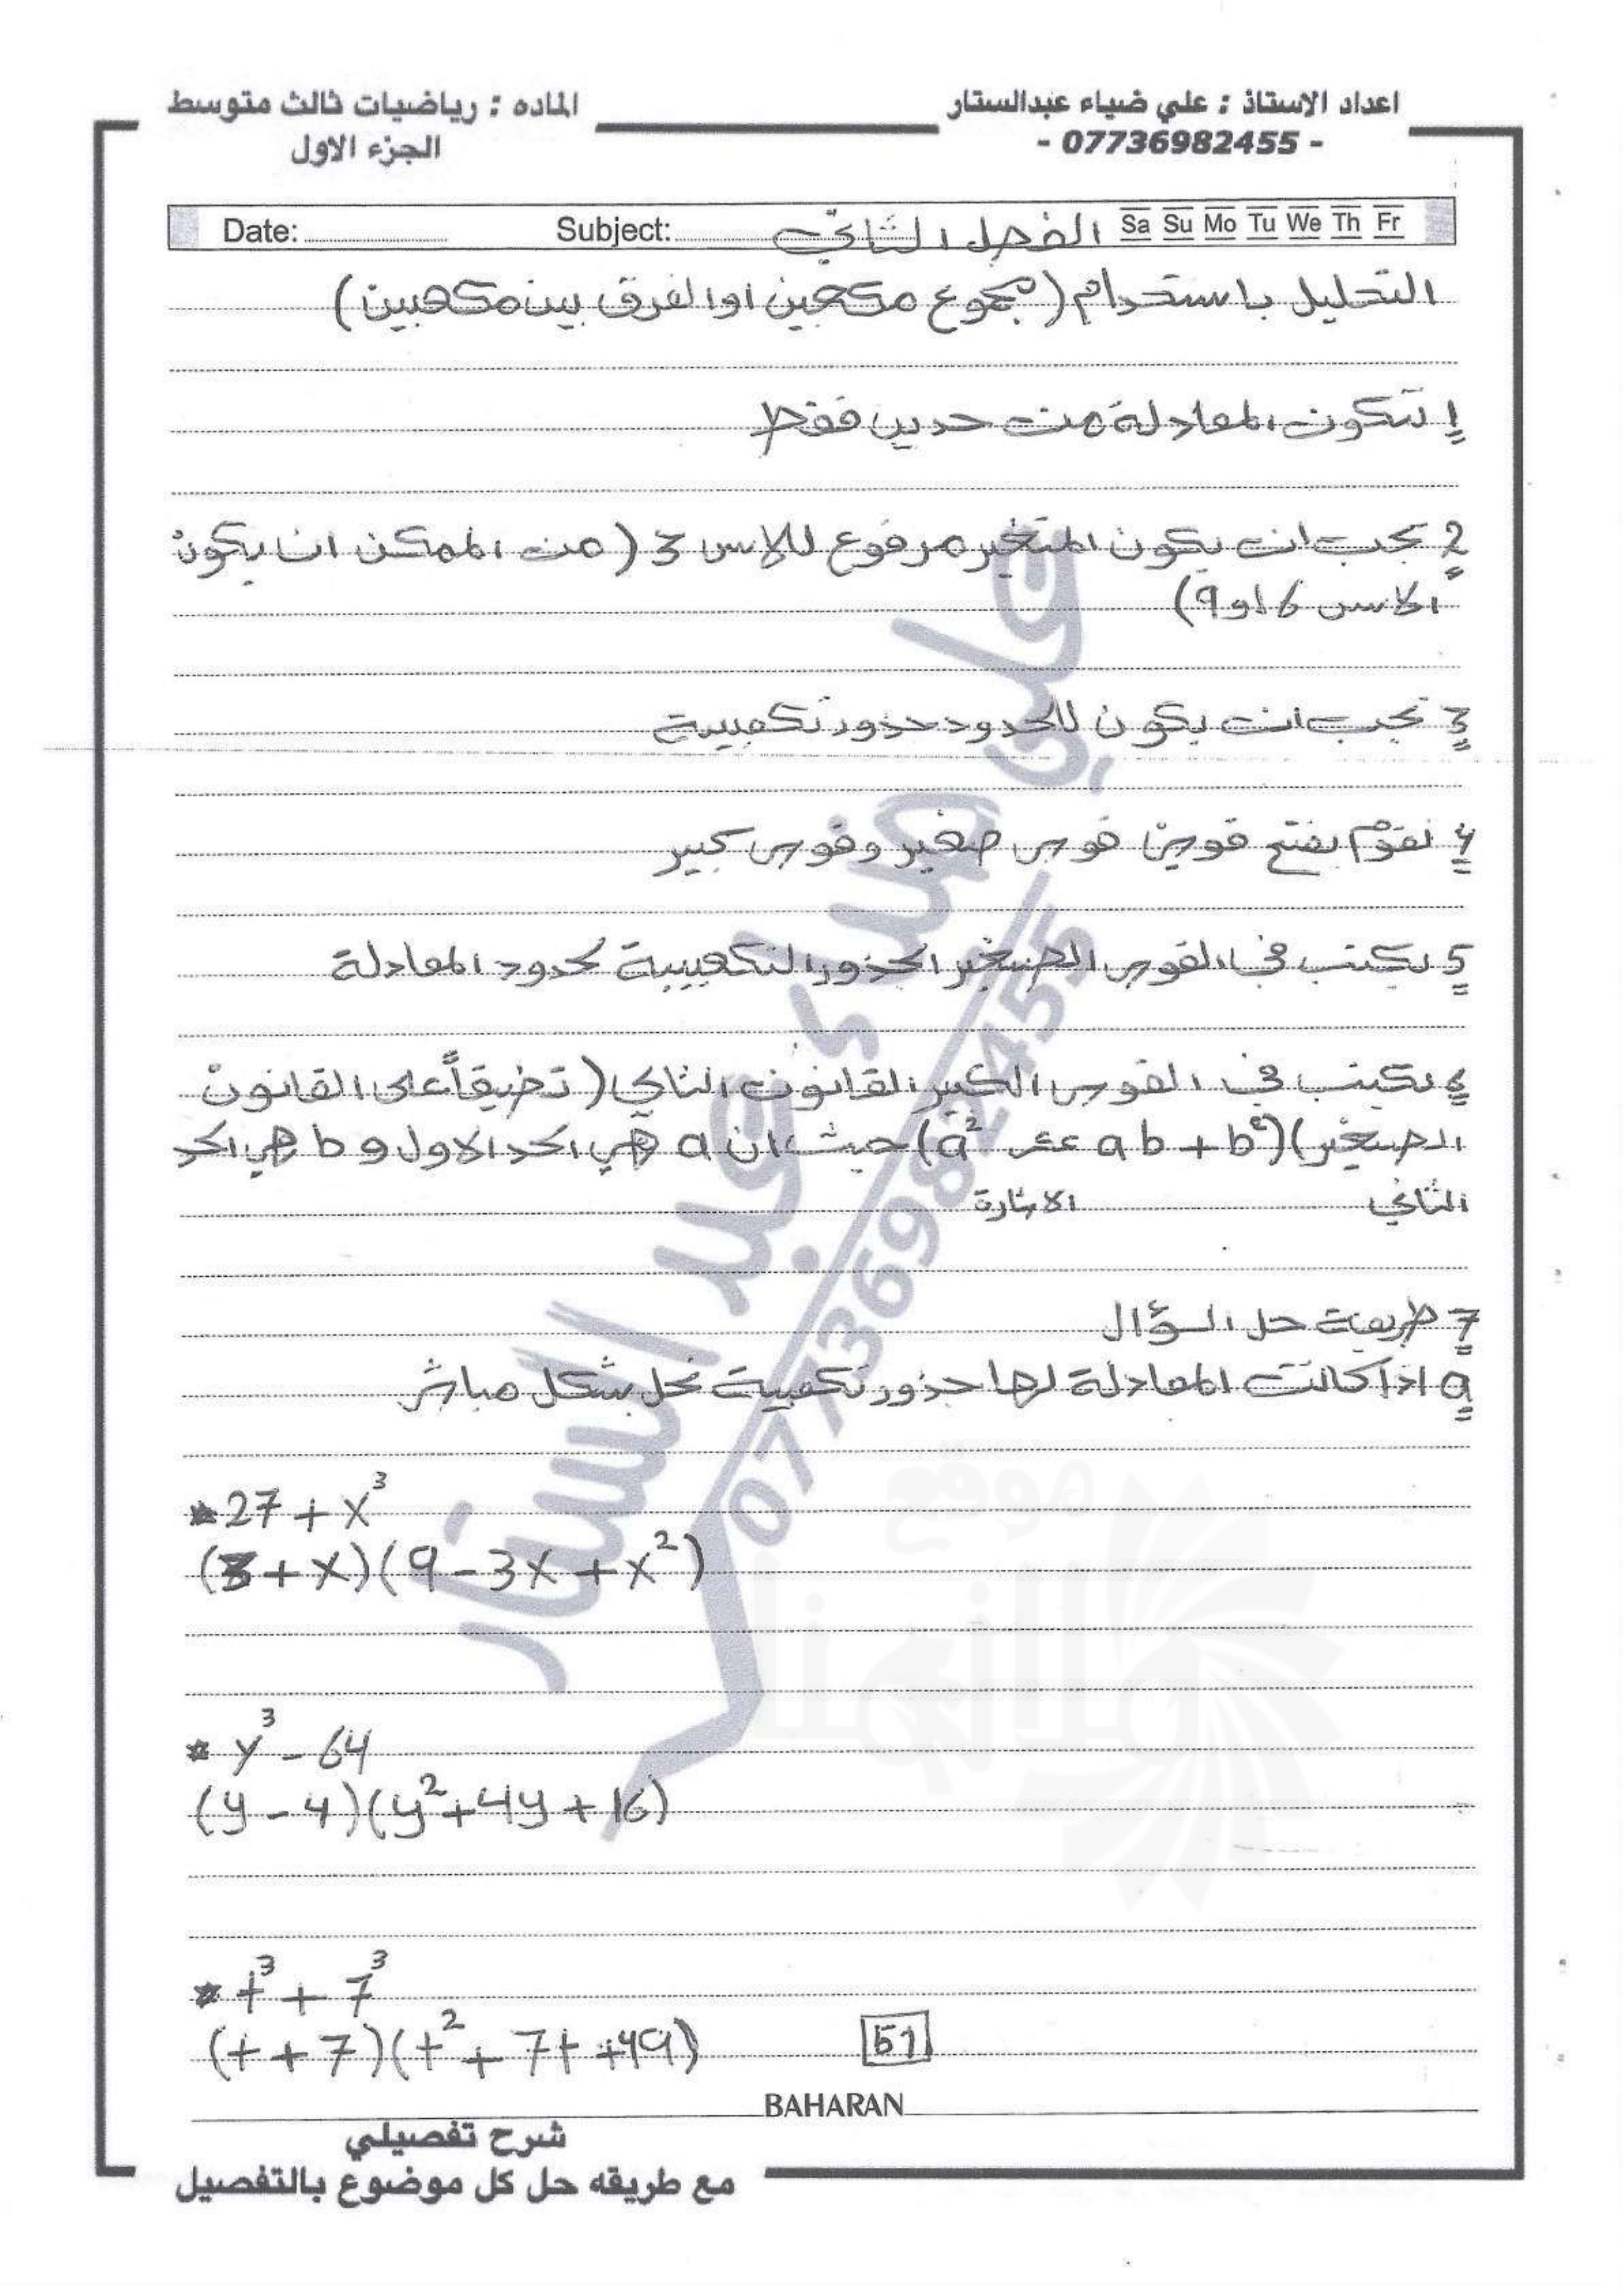 اعداد الاستاذ : علي ضياء عبدالستار
- 07736982455 -
الماده : رياضيات ثالث متوسط
الجزء الاول
Date: Subject: الفصل الثاني Sa Su Mo Tu We Th Fr
التحليل باستخدام (مجموع مكعبين او الفرق بين مكعبين)
1 تتكون المعادلة من حدين فقط
2 يجب ان يكون المتغير مرفوع للاس 3 (من الممكن ان يكون
الاس 6 او 9)
3 يجب ان يكون للحدود جذور تكعيبية
4 نقوم بفتح قوسين قوس صغير وقوس كبير
5 نكتب في القوس الصغير الجذور التكعيبية لحدود المعادلة
6 نكتب في القوس الكبير القانون التالي (تطبيقاً على القانون
الصغير) (a² عكس ab + b²) حيث ان a هي الحد الاول و b هي الحد
الثاني الاشارة
7 طريقة حل السؤال
a اذا كانت المعادلة لها جذور تكعيبية نحل بشكل مباشر
* 27 + x³
(3 + x)(9 - 3x + x²)
* y³ - 64
(y - 4)(y² + 4y + 16)
* t³ + 7³
(t + 7)(t² + 7t + 49)
51
BAHARAN
شرح تفصيلي
مع طريقه حل كل موضوع بالتفصيل
علي ضياء عبد الستار
07736982455
موقع